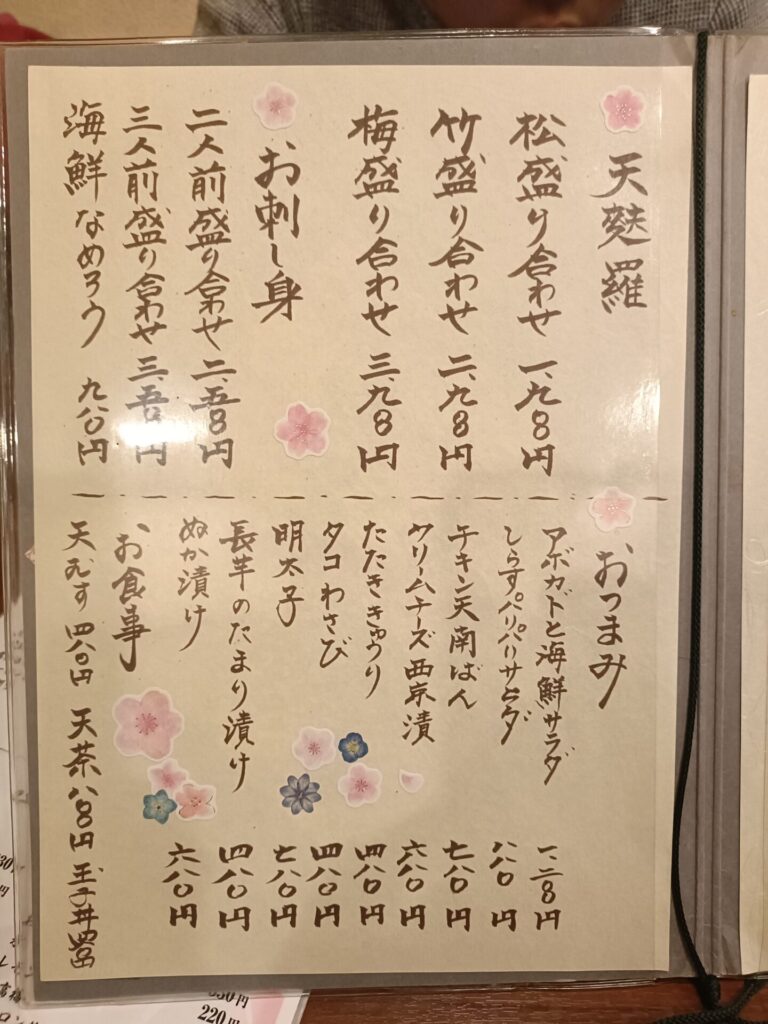 天麩羅
松盛り合わせ 一、九八〇円
竹盛り合わせ 二、九八〇円
梅盛り合わせ 三、九八〇円
お刺し身
二人前盛り合わせ 二、五八〇円
三人前盛り合わせ 三、五八〇円
海鮮なめろう 九八〇円
おつまみ
アボガドと海鮮サラダ 一、二八〇円
しらすパリパリサラダ 八八〇円
チキン天南ばん 七八〇円
クリームチーズ西京漬 六八〇円
たたききゅうり 四八〇円
タコわさび 四八〇円
明太子 七八〇円
長芋のたまり漬け 四八〇円
ぬか漬け 六八〇円
お食事
天むす 四八〇円 天茶 八八〇円 玉子丼
220円